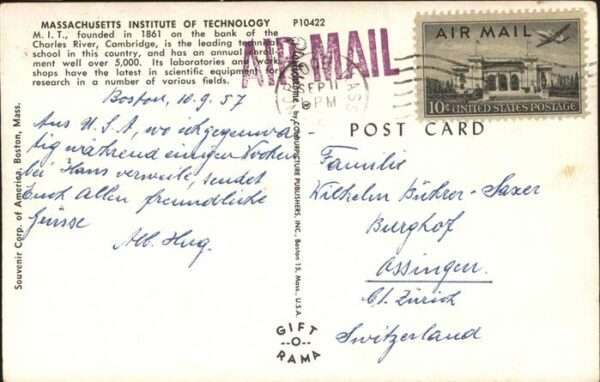 MASSACHUSETTS INSTITUTE OF TECHNOLOGY P10422
M. I. T., founded in 1861 on the bank of the
Charles River, Cambridge, is the leading technical
school in this country, and has an annual enroll-
ment well over 5,000. Its laboratories and work
shops have the latest in scientific equipment for
research in a number of various fields.
AIR MAIL
AIR MAIL
10¢ UNITED STATES POSTAGE
MASS
SEP 11
PM
POST CARD
Boston, 10.9.57
Aus U.S.A, wo ich gegenwär-
tig während einigen Wochen
bei Hans verweile, sendet
Euch Allen freundliche
Grüsse
Alb. Hug.
Familie
Wilhelm Bührer-Saxer
Burghof
Ossingen.
Ct. Zürich
Switzerland
Souvenir Corp. of America, Boston, Mass.
by COLOURPICTURE PUBLISHERS, INC., Boston 15, Mass., U.S.A.
GIFT
-O-
RAMA